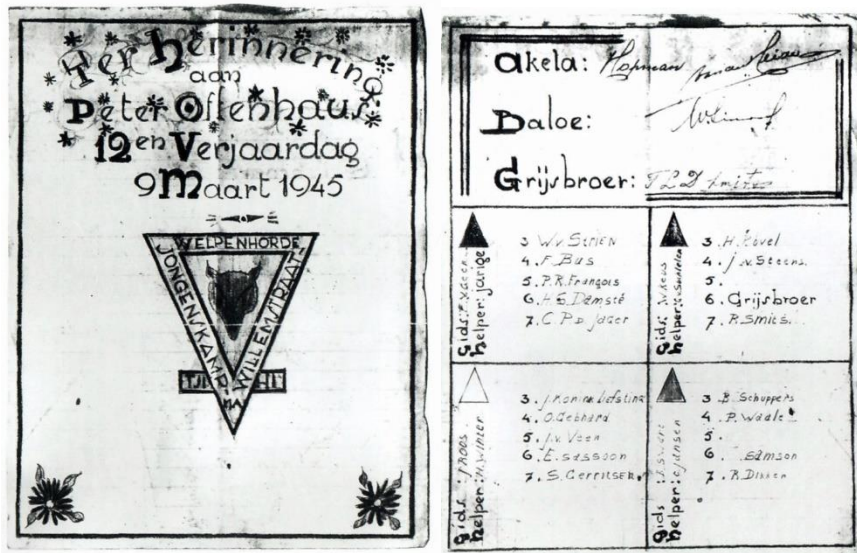 Ter herinnering
aan
Peter Ostenhaus'
12en Verjaardag
9 Maart 1945
WELPENHORDE
JONGENSKAMP
WILLEMSTRAAT-
Akela: Hopman
Baloe:
Grijsbroer:
Gids:
helper: jarige
3 W.v. Strien
4. F. Bus
5. P.R. François
6. H.E. Damsté
7. C.P.D. Jager
Gids:
helper:
3. H. Povel
4. J.v. Steens
5.
6. Grijsbroer
7. R. Smies.
Gids: J. Roos
helper: M. Winter
3. J. Konink Liefsting
4. O. Gebhard
5. J.v. Veen
6. E. Sassoon
7. S. Gerritsen
Gids:
helper: C. Jansen
3 B. Schuppers
4 P. Waale
5.
6. Samson
7. R. Dikken